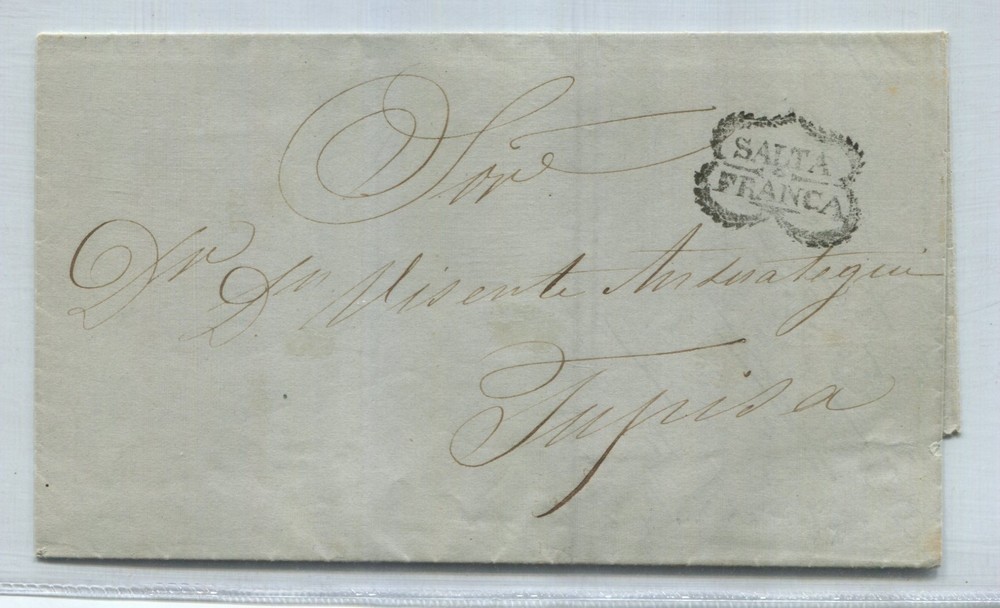 Sor.e
SALTA
FRANCA
Dr Dn Visente Anserategui
Tupisa